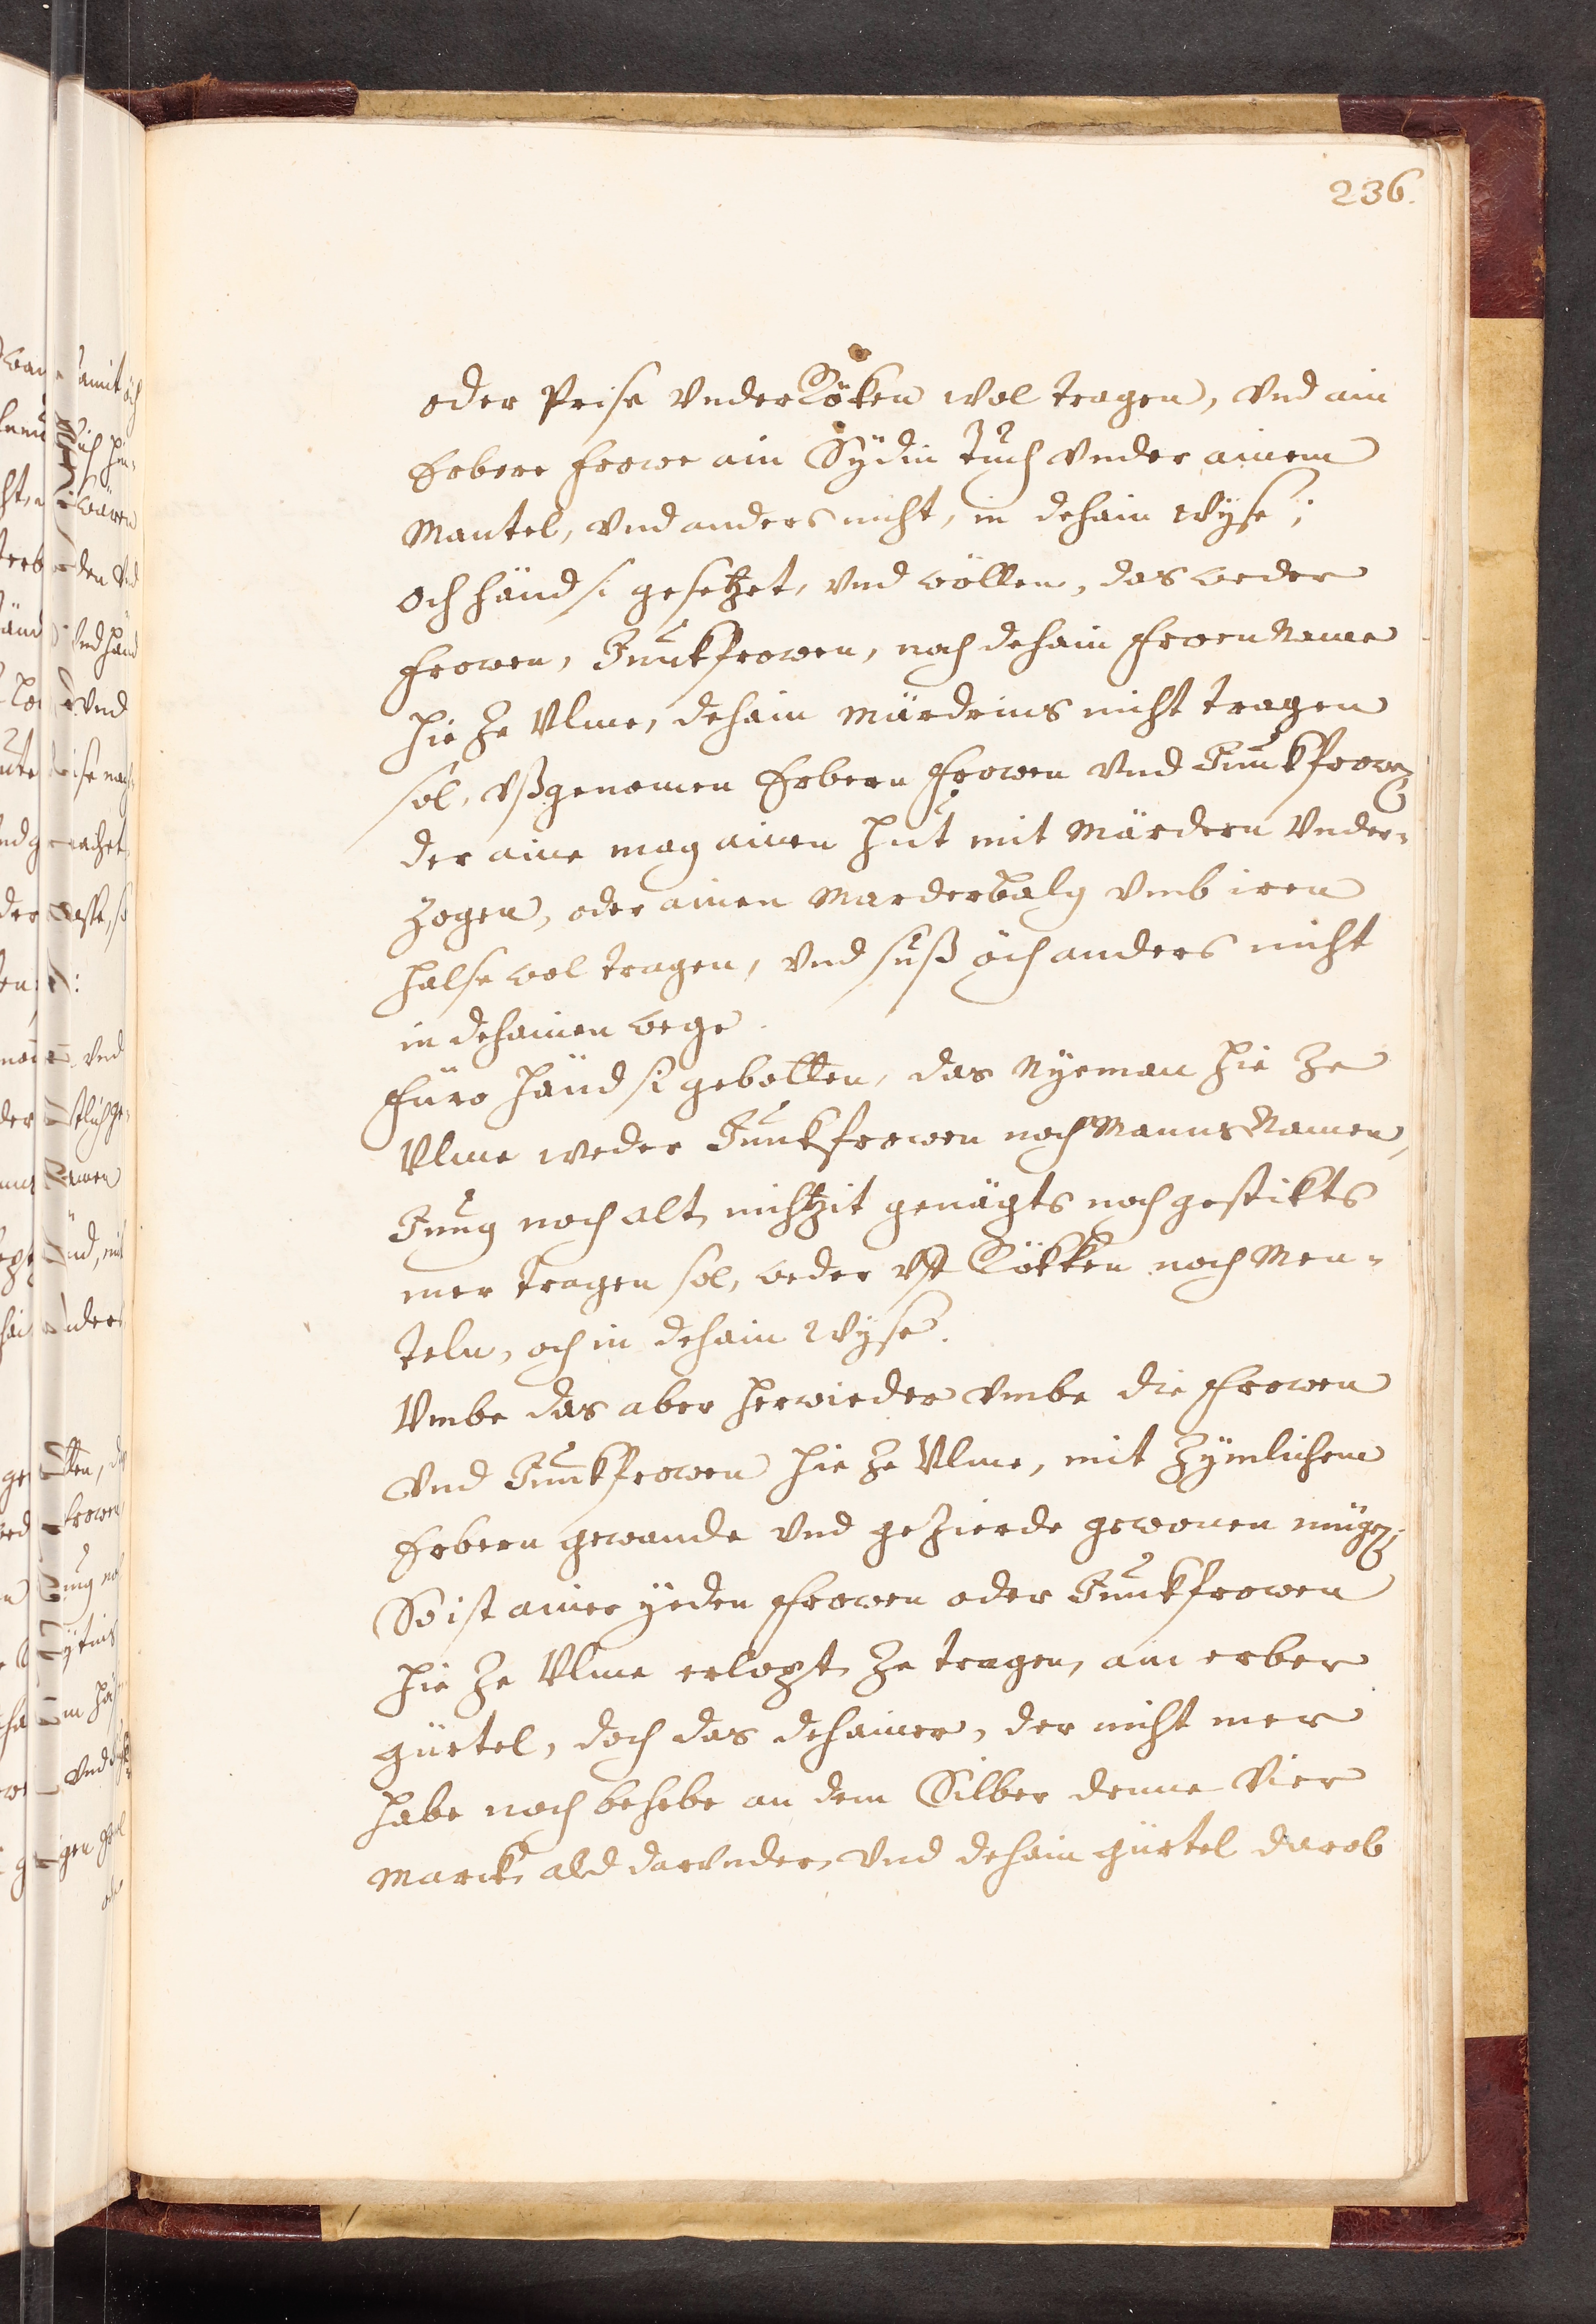 236.
oder Prise Vnder Röken wol tragen, Vnd ain
Erbere frowe ain Sÿdin Tuch Vnder ainem
Mantel, Vnd anders nicht, in dehain wÿse;
Och händ si gesetzet, vnd wöllen, das weder
frowen, Junkfrowen, noch dehain frowen Name
hie Ze Vlme, dehain Märdrins nicht tragen
sol, vßgenomen Erbern frowen Vnd Junkfrowen
der aine mag ainen Hut mit Märdern Vnder-
zogen, oder ainen Marderbalg vmb iren
Halse wol tragen, Vnd suß öch anders nicht
in dehainen wege.
Füro Händ si gebotten, das Nÿeman hie Ze
Vlme weder Junkfrowen noch Manns Namen,
Jung noch alt, nichtzit genägts noch gestikts
mer tragen sol, weder vff Rökken noch Men-
teln, och in dehain wÿse.
Vmbe das aber herwieder vmbe die frowen
Vnd Junkfrowen hie Ze Vlme, mit Zÿmlichem
Erbern gewande Vnd geZierde gewonen mügen;
So ist ainer ÿeden frowen oder Junkfrowen
hie Ze Vlme erlopt, Ze tragen, ain erber
gürtel, doch das dehainer, der nicht mer
habe noch behebe an dem Silber denne Vier
Marck, ald darvnder, Vnd dehain gürtel darob